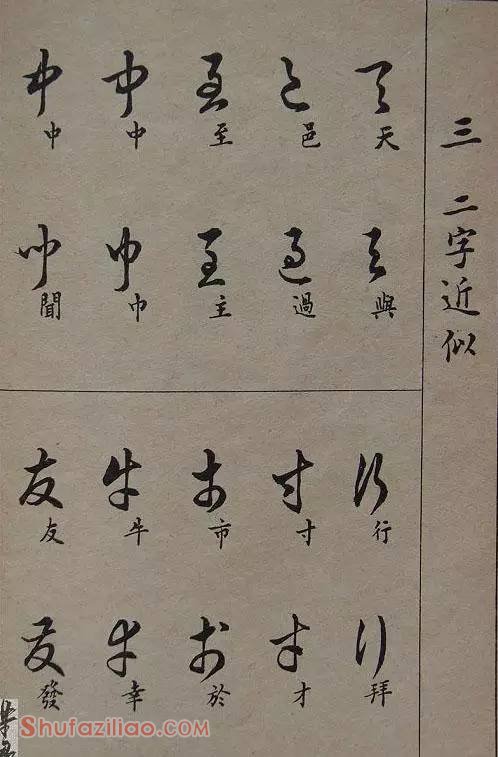 三 二字近似
天 邑 至 中 中
與 過 主 巾 聞
行 寸 市 牛 友
拜 才 於 幸 發
Shufaziliao.com